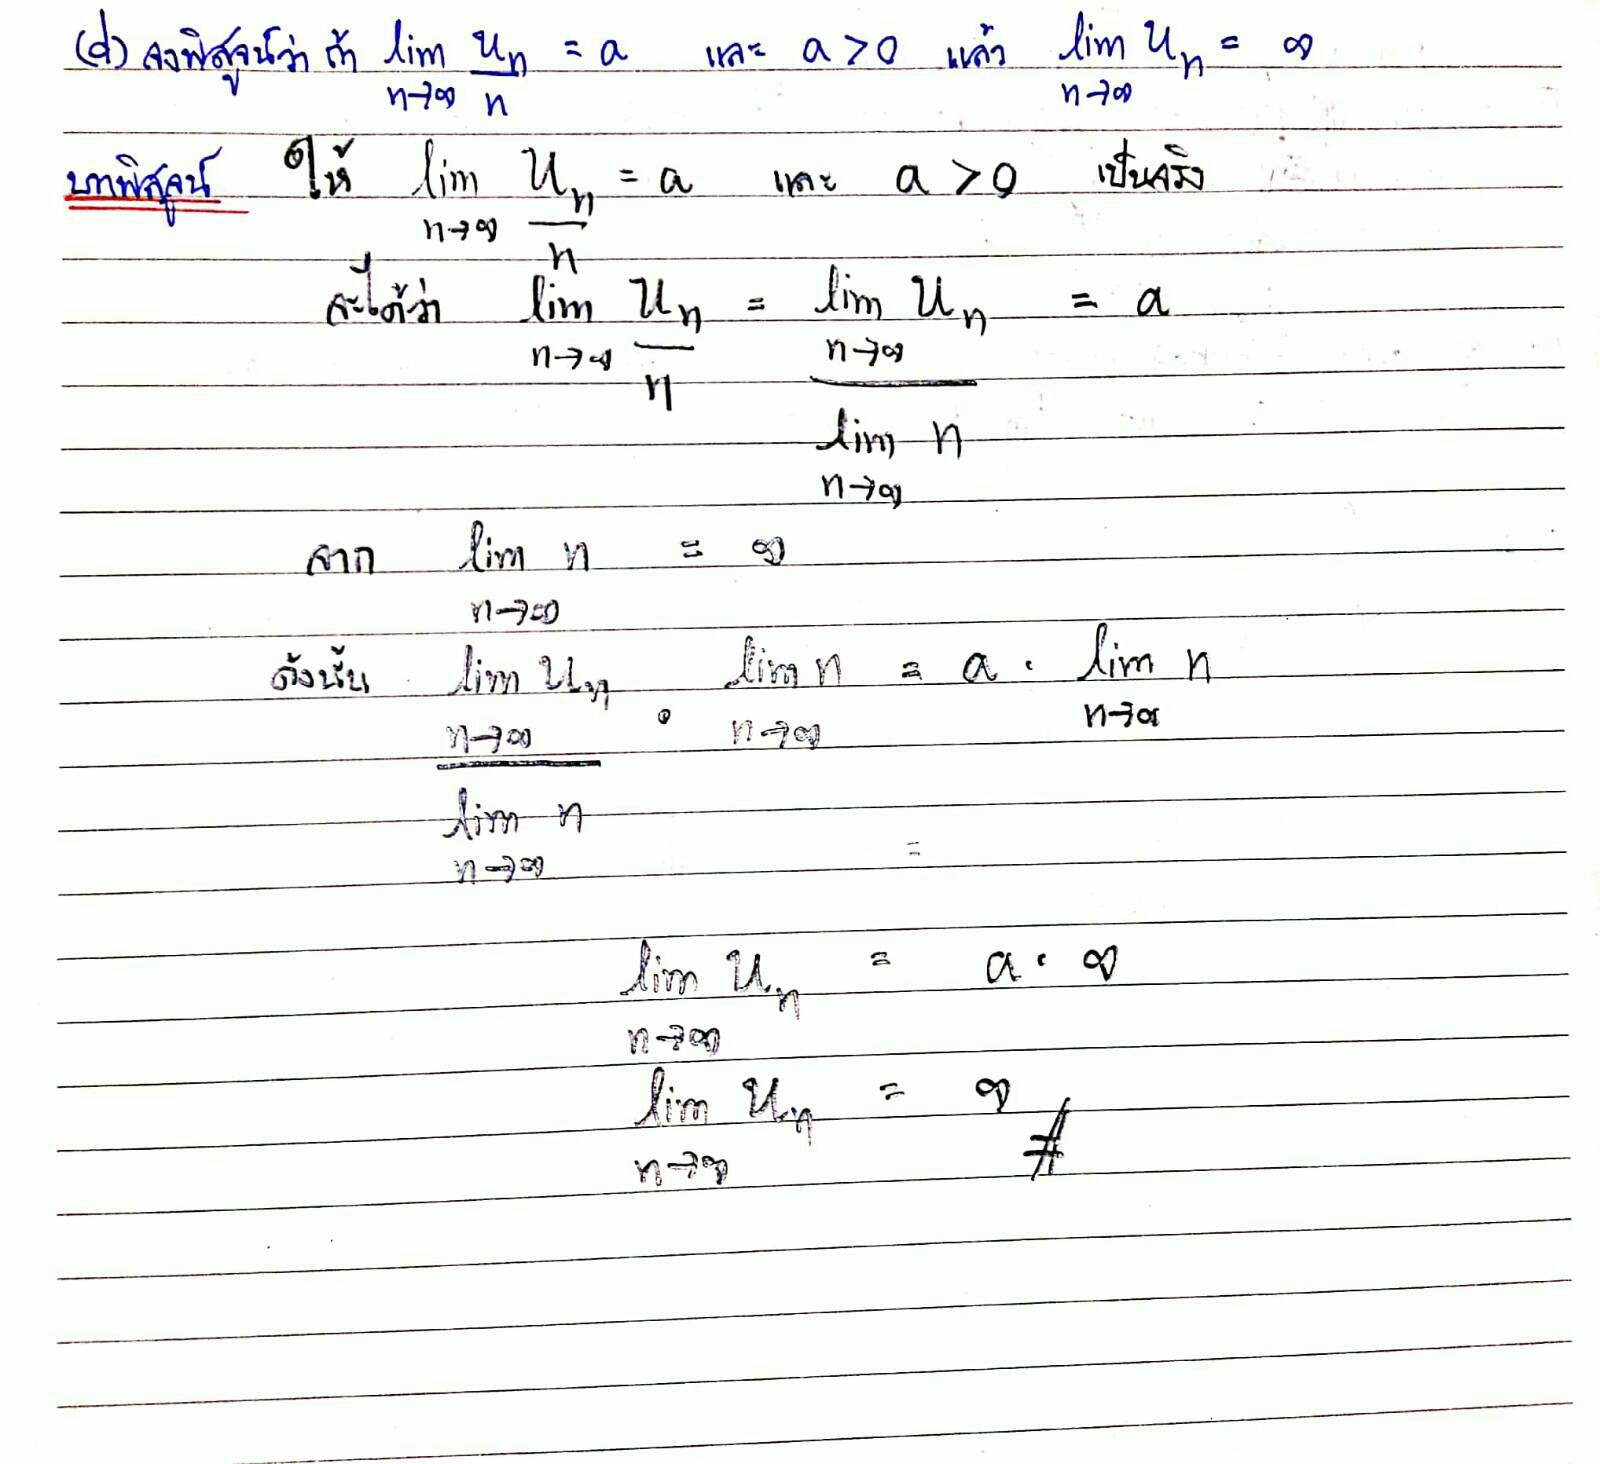 (d) จงพิสูจน์ว่า ถ้า lim n→∞ un/n = a และ a>0 แล้ว lim n→∞ un = ∞
บทพิสูจน์ ให้ lim n→∞ un/n = a และ a > 0 เป็นจริง
จะได้ว่า lim n→∞ un/n = lim n→∞ un / lim n→∞ n = a
จาก lim n→∞ n = ∞
ดังนั้น lim n→∞ un / lim n→∞ n · lim n→∞ n = a · lim n→∞ n
=
lim n→∞ un = a · ∞
lim n→∞ un = ∞ #